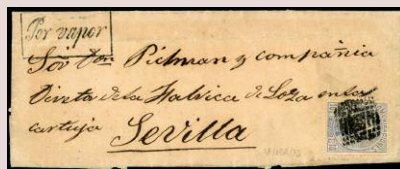 Por vapor
Sor Don Pikman y compañia
Direta de la Fabrica de Loza en la
cartuja
Sevilla